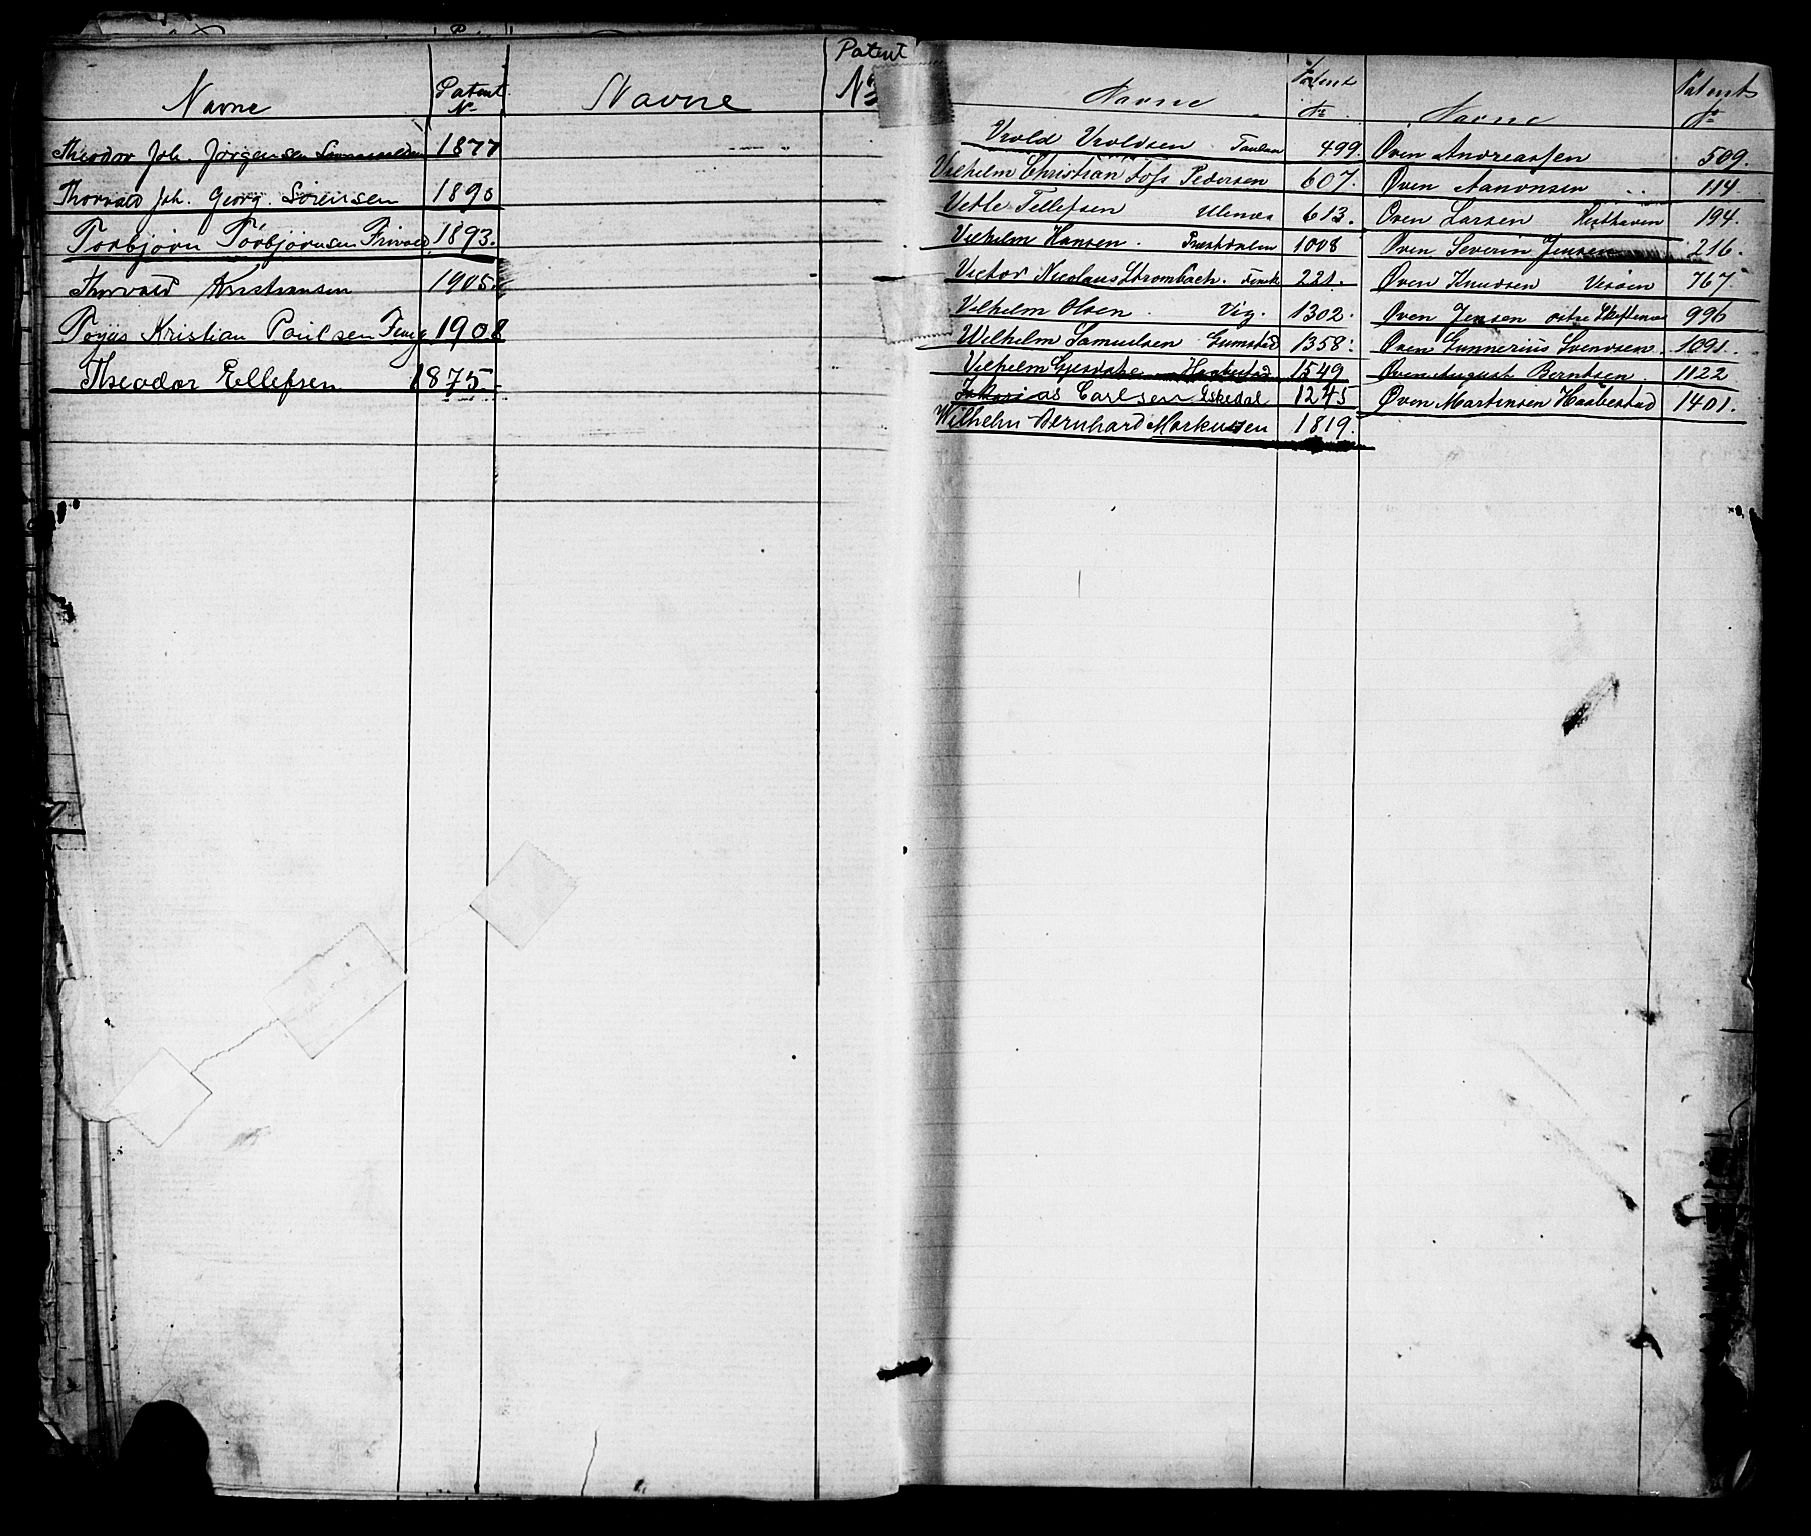 Navne Patent No Navne Patent No
Theodor Joh. Jørgensen 1877
Thorvald Joh. Georg. Sörensen 1890
Torbjørn Torbjørnsen Frivold 1893.
Thorvald Kristiansen 1905
Kristian Paulsen 1908
Theodor Ellefsen 1875
Navne Patent No Navne Patent No
Vrold Vroldsen 499. Øven Andreassen 509.
Vilhelm Christian Foss Pedersen 607. Øven Aanonsen 114
Vetle Tellefsen Ulenæs 613. Øven Larsen Hesthaven 194.
Vilhelm Hansen. Præstdalen 1008 Øven Severin Jensen 216.
Victor Nicolaus Strombach. Finsk 221. Øven Knudsen Vesøen 767.
Vilhelm Olsen. Vig. 1302. Øven Jensen østre 996
Wilhelm Samuelsen Gumstad 1358. Øven Gunnerius Svendsen. 1091.
Vilhelm Haabestad 1549 Øven August Berntsen 1122
Carlsen Eskedal 1245 Øven Martinsen Haabestad 1401.
Wilhelm Bernhard Markussen 1819.